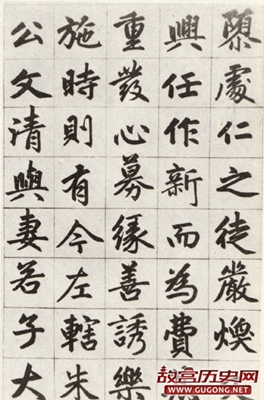 處仁之徒嚴煥
興任作新而為費
重發心募緣善誘樂
施時則有今左轄朱
公文清與妻若子大
故宫历史网
www.GUGONG.net